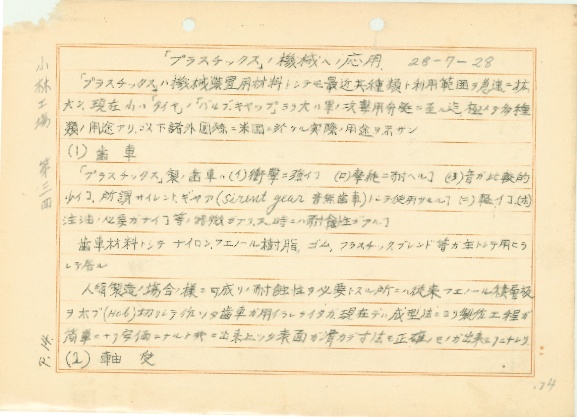 「プラスチックス」ノ機械ヘノ応用 28-7-28
「プラスチックス」ハ機械装置用材料トシテモ最近其種類ト利用範囲ヲ急速ニ拡
大シ、現在
種
類ノ用途アリ、以下諸外国殊ニ米国ニ於ケル実際ノ用途ヲ示サン
(1) 歯車
「プラスチックス」製ノ歯車ハ(イ)衝撃ニ強イ」(ロ)摩耗ニ耐ヘル」(ハ)音ガ比較的
少イ」所謂サイレントギヤア(Sirent gear 音無歯車)トシテ使用サレル」(ニ)軽イ」(ホ)
注油ノ必要ガナイ」等ノ特徴ガアリ、又時ニハ耐蝕性ガアル」
歯車材料トシテナイロン、フェノール樹脂、ゴム、プラスチックブレンド等ガ主トシテ用ヒラ
レテ居ル
人絹製造ノ場合ノ様ニ可成リノ耐蝕性ヲ必要トスル所ニハ従来フェノール積層板
ヲホブ(Hob)切リシテ作ツタ歯車ガ用ヒラレテイタガ、現在デハ成型法ニヨリ製作工程ガ
簡単ニナリ安価ニナルト共ニ出来上リノ表面ガ滑カデ寸法モ正確ノモノガ出来ル
(2) 軸受
小林工場 第三回
P. 14.
.74